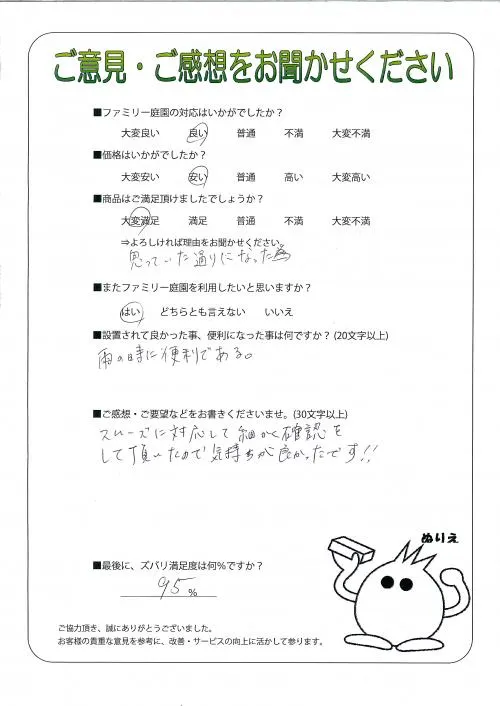 ご意見・ご感想をお聞かせください
■ファミリー庭園の対応はいかがでしたか？
大変良い 良い 普通 不満 大変不満
■価格はいかがでしたか？
大変安い 安い 普通 高い 大変高い
■商品はご満足頂けましたでしょうか？
大変満足 満足 普通 不満 大変不満
⇒よろしければ理由をお聞かせください。
思っていた通りになった為
■またファミリー庭園を利用したいと思いますか？
はい どちらとも言えない いいえ
■設置されて良かった事、便利になった事は何ですか？(20文字以上)
雨の時に便利である。
■ご感想・ご要望などをお書きくださいませ。(30文字以上)
スムーズに対応して細かく確認を
して頂いたので気持ちが良かったです!!
ぬりえ
■最後に、ズバリ満足度は何%ですか？
95%
ご協力頂き、誠にありがとうございました。
お客様の貴重な意見を参考に、改善・サービスの向上に活かして参ります。